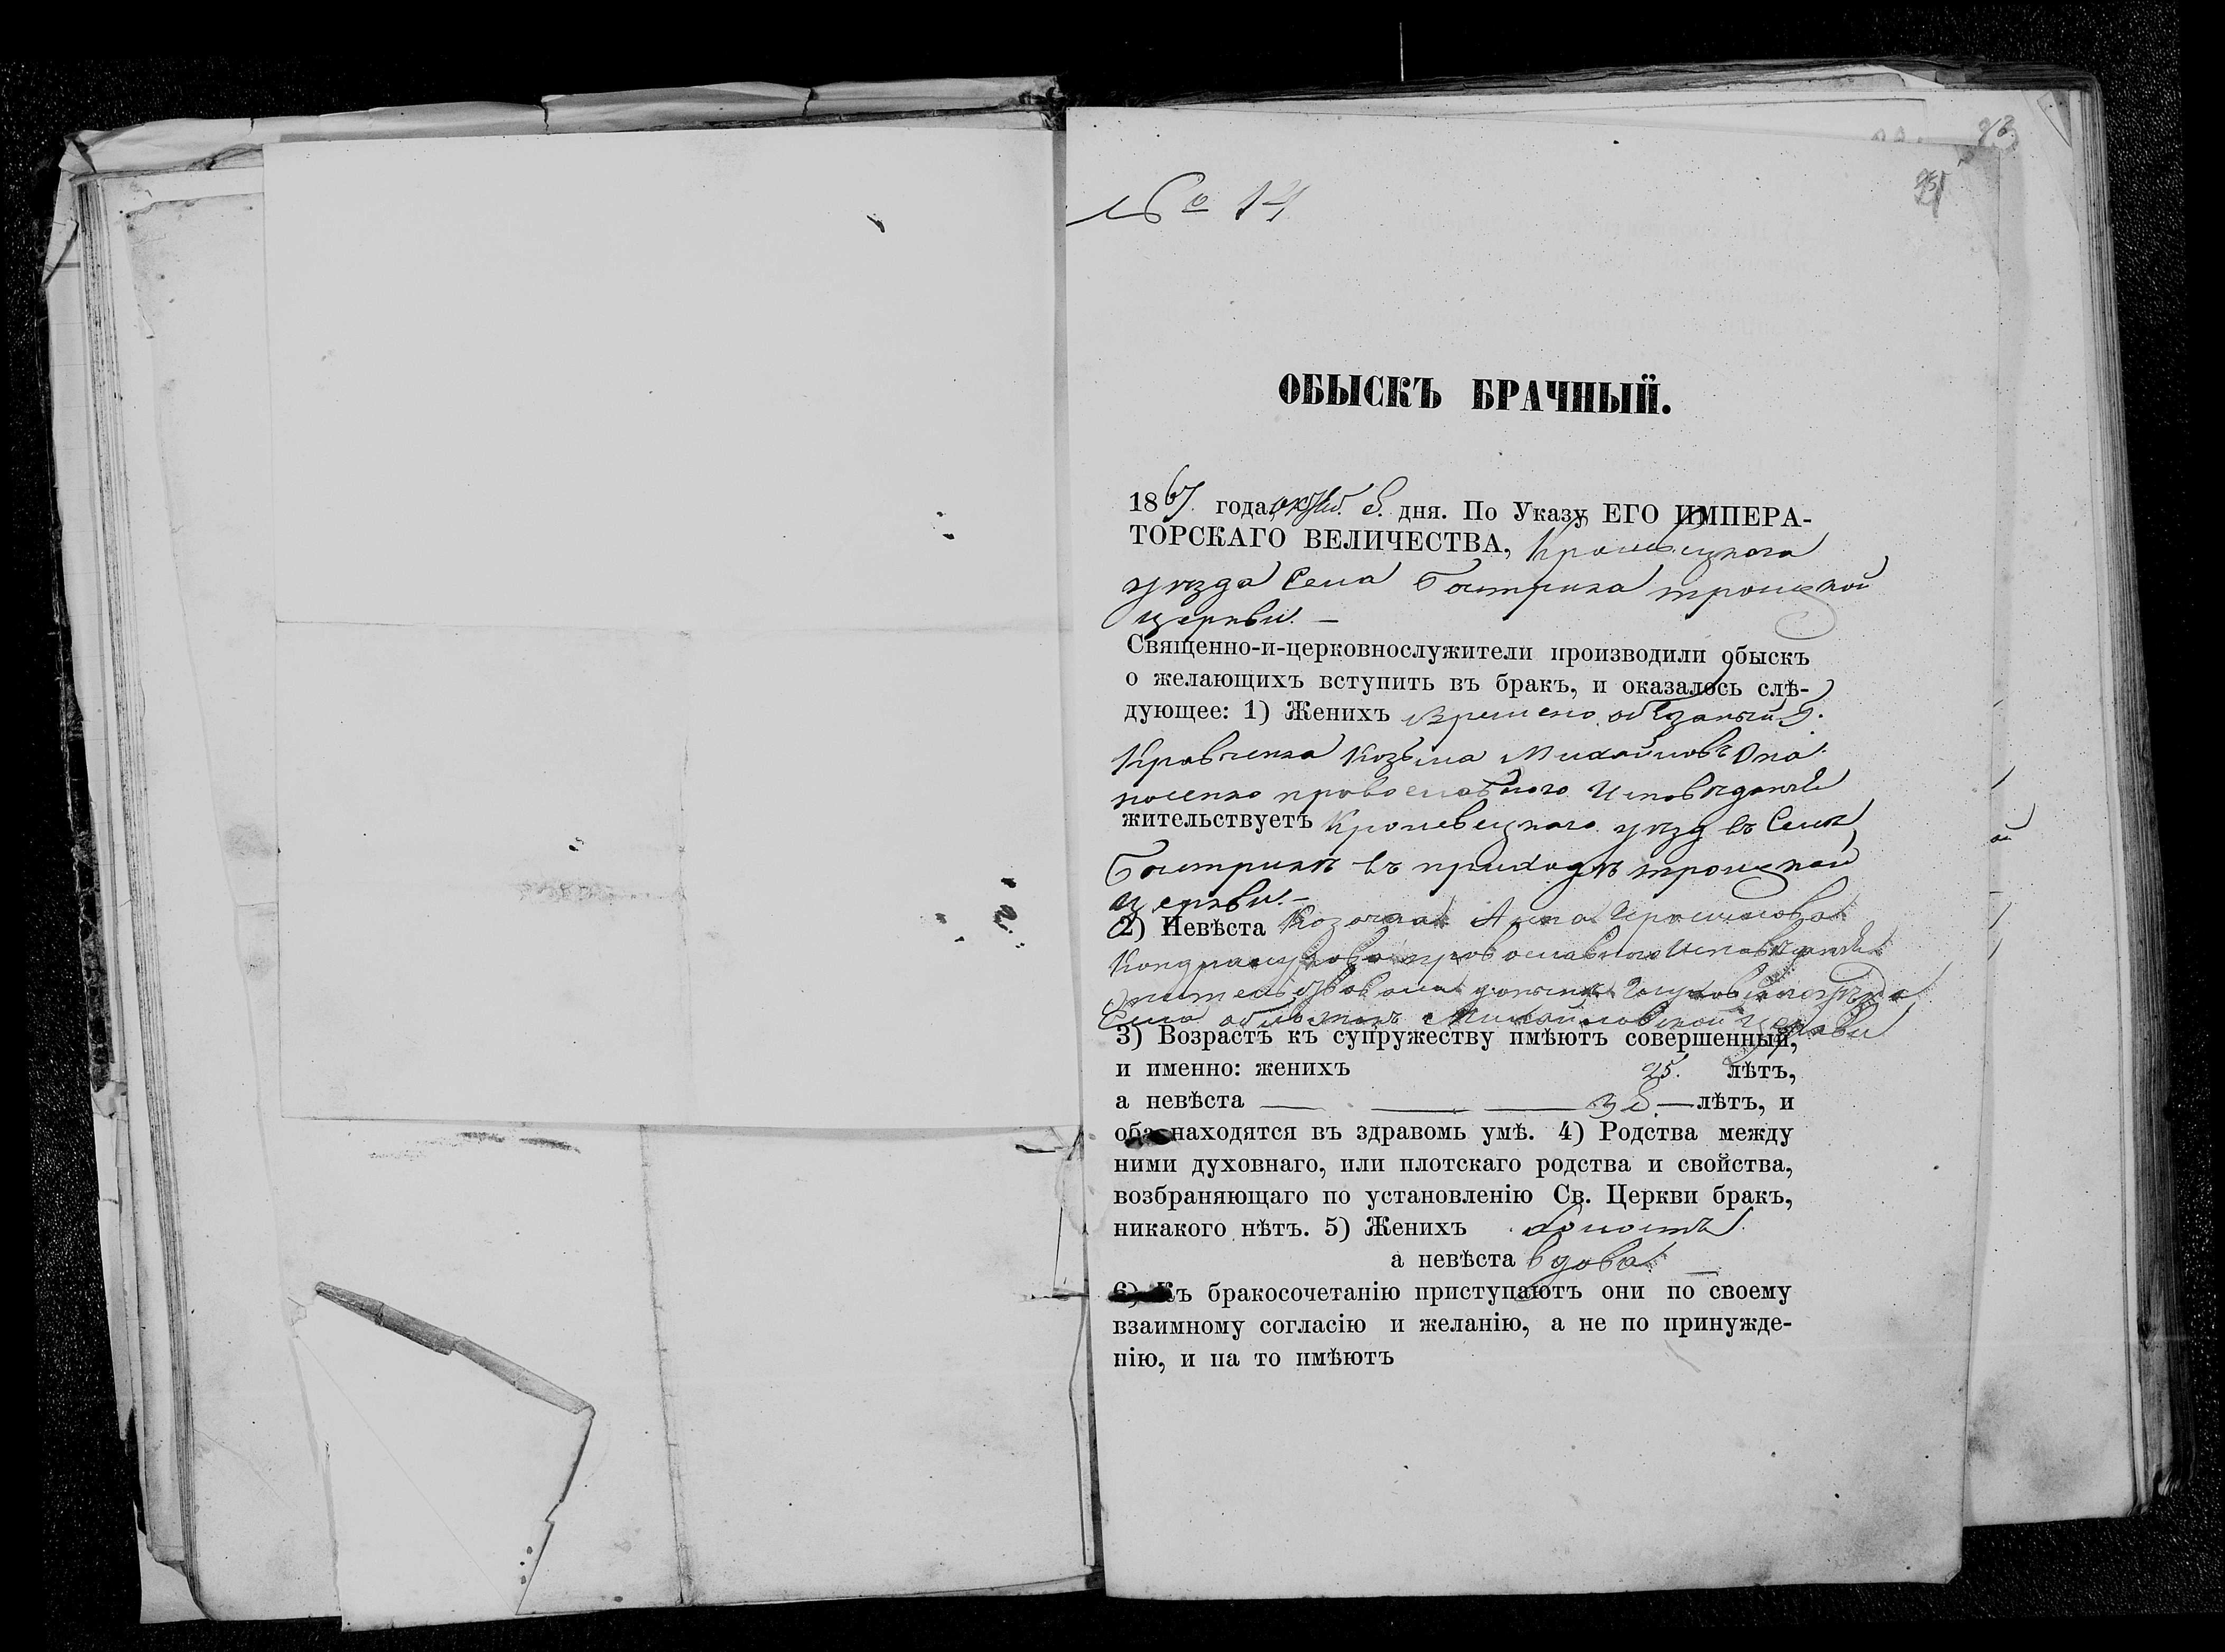 № 14
ОБЫСКЪ БРАЧНЫЙ.
1867. года дня. По Указу ЕГО ИМПЕРА-
ТОРСКАГО ВЕЛИЧЕСТВА, Кролевецкого
уѣзда Села троицкой
церкви. —
Священно-и-церковнослужители производили обыскъ
о желающихъ вступить въ бракъ, и оказалось слѣ-
дующее: 1) Женихъ Времено обязаный
Козьма Михайловъ
православного Исповѣданія
жительствуетъ Кролевецкого уѣзд въ Селѣ
въ приходѣ троицкой
церкви. —
2) Невѣста Козачка Анна
православного Исповѣданія
Села Михайловской церкви
3) Возрастъ къ супружеству имѣютъ совершенный,
и именно: женихъ 25. лѣтъ,
а невѣста — — — 38. — лѣтъ, и
оба находятся въ здравомь умѣ. 4) Родства между
ними духовнаго, или плотскаго родства и свойства,
возбраняющаго по установленію Св. Церкви бракъ,
никакого нѣтъ. 5) Женихъ холостъ
а невѣста вдова —
6) Къ бракосочетанію приступаютъ они по своему
взаимному согласію и желанію, а не по принужде-
нію, и на то имѣютъ